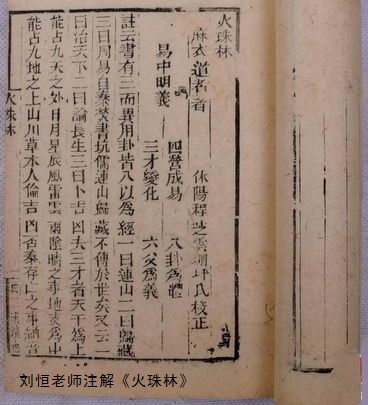 火珠林
麻衣道者著 休陽程芝雲圳坪氏校正
四營成易 八卦為體
易中明義
三才變化 六爻為義
註云書有三而異用卦皆八以為經一曰連山二曰歸藏
三曰周易自秦焚書坑儒連山歸藏不傳於世矣又云一
曰治天下二曰論長生三曰卜吉凶夫三才者天為上
能占九天之外日月星辰風雷雲雨陰晴之事地為中
能占九地之上山川草木人倫吉凶否泰存亡之事
火珠林
刘恒老师注解《火珠林》